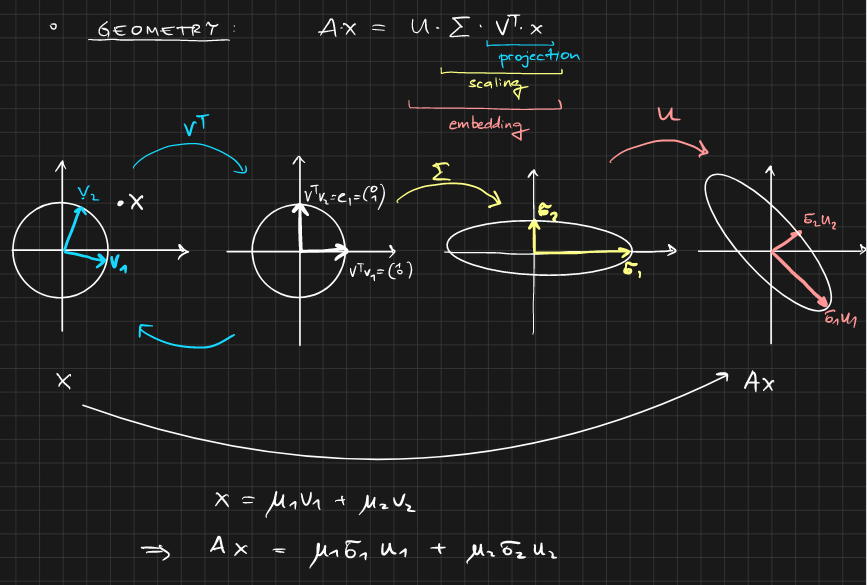 ° GEOMETRY: A·x = U·Σ·Vᵀ·x
projection
scaling
embedding
Vᵀ
Σ
U
v₂
• x
v₁
Vᵀv₂=e₁=(0 1)
Vᵀv₁=(1 0)
σ₂
σ₁
σ₂u₂
σ₁u₁
x
Ax
x = μ₁v₁ + μ₂v₂
⇒ Ax = μ₁σ₁u₁ + μ₂σ₂u₂